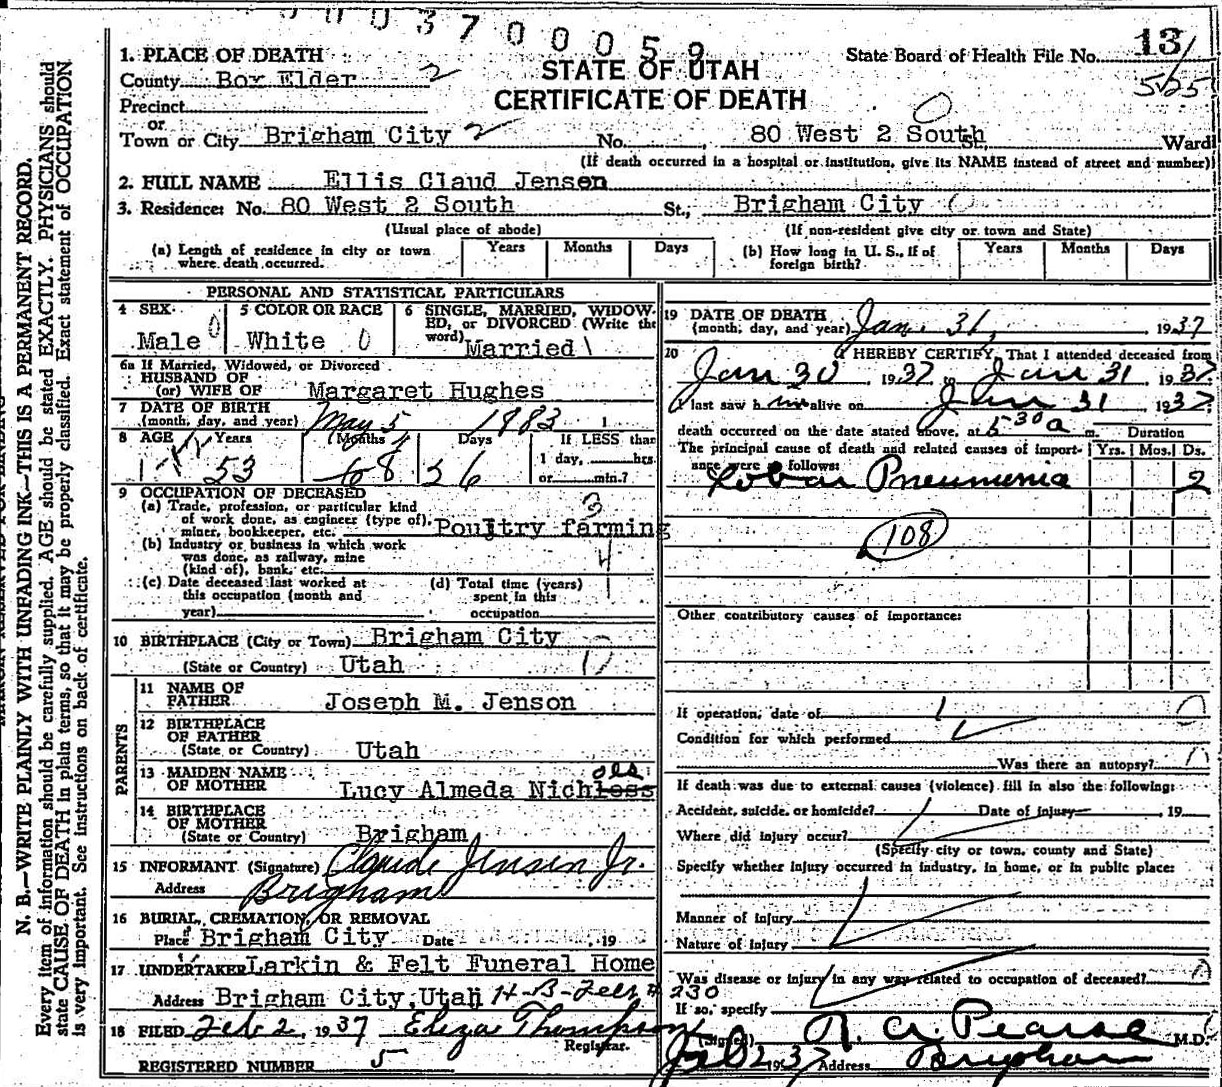 00370 0059
13/
525
1. PLACE OF DEATH
State Board of Health File No.
STATE OF UTAH
County Box Elder 2
CERTIFICATE OF DEATH
Precinct
0
or
Town or City Brigham City 2 No. 80 West 2 South St., Ward
(If death occurred in a hospital or institution, give its NAME instead of street and number)
2. FULL NAME Ellis Claud Jensen
3. Residence: No. 80 West 2 South St., Brigham City 0
(Usual place of abode) (If non-resident give city or town and State)
(a) Length of residence in city or town where death occurred. Years Months Days (b) How long in U. S., if of foreign birth? Years Months Days
PERSONAL AND STATISTICAL PARTICULARS
4 SEX Male 0
5 COLOR OR RACE White 0
6 SINGLE, MARRIED, WIDOW-
ED, or DIVORCED (Write the
word) Married 1
6a If Married, Widowed, or Divorced
HUSBAND OF
(or) WIFE OF Margaret Hughes
7 DATE OF BIRTH
(month, day, and year) May 5 1983 1
8 AGE Years Months Days If LESS than
53 8 26 1 day, hrs.
or min.?
9 OCCUPATION OF DECEASED
(a) Trade, profession, or particular kind
of work done, as engineer (type of),
miner, bookkeeper, etc. Poultry farming
3
(b) Industry or business in which work
was done, as railway, mine
(kind of), bank, etc.
4
(c) Date deceased last worked at
this occupation (month and
year)
(d) Total time (years)
spent in this
occupation
10 BIRTHPLACE (City or Town) Brigham City
(State or Country) Utah
PARENTS
11 NAME OF
FATHER Joseph M. Jenson
12 BIRTHPLACE
OF FATHER
(State or Country) Utah
13 MAIDEN NAME
OF MOTHER Lucy Almeda Nichless
oles
14 BIRTHPLACE
OF MOTHER
(State or Country) Brigham
15 INFORMANT (Signature) Claude Jensen Jr.
Address Brigham
16 BURIAL, CREMATION, OR REMOVAL
Place Brigham City Date , 19
17 UNDERTAKER Larkin & Felt Funeral Home
Address Brigham City, Utah H-B-Felt # 230
18 FILED Feb 2, 1937 Eliza Thompson
Registrar.
REGISTERED NUMBER 5
19 DATE OF DEATH
(month, day, and year) Jan. 31, 1937
20 I HEREBY CERTIFY, That I attended deceased from
Jan 30 1937, to Jan 31 1937
I last saw him alive on Jan 31 1937
death occurred on the date stated above, at 5 30 a m. Duration
The principal cause of death and related causes of import-
ance were as follows: Yrs. Mos. Ds.
Lobar Pneumonia 2
108
Other contributory causes of importance:
If operation, date of
Condition for which performed
Was there an autopsy?
If death was due to external causes (violence) fill in also the following:
Accident, suicide, or homicide? Date of injury , 19
Where did injury occur?
(Specify city or town, county and State)
Specify whether injury occurred in industry, in home, or in public place:
Manner of Injury
Nature of injury
Was disease or injury in any way related to occupation of deceased?
If so, specify
(Signed) R. A. Pearse M.D.
Feb 2 1937 Address Brigham
N. B.—WRITE PLAINLY WITH UNFADING INK—THIS IS A PERMANENT RECORD.
Every item of information should be carefully supplied. AGE should be stated EXACTLY. PHYSICIANS should
state CAUSE OF DEATH in plain terms, so that it may be properly classified. Exact statement of OCCUPATION
is very important. See instructions on back of certificate.